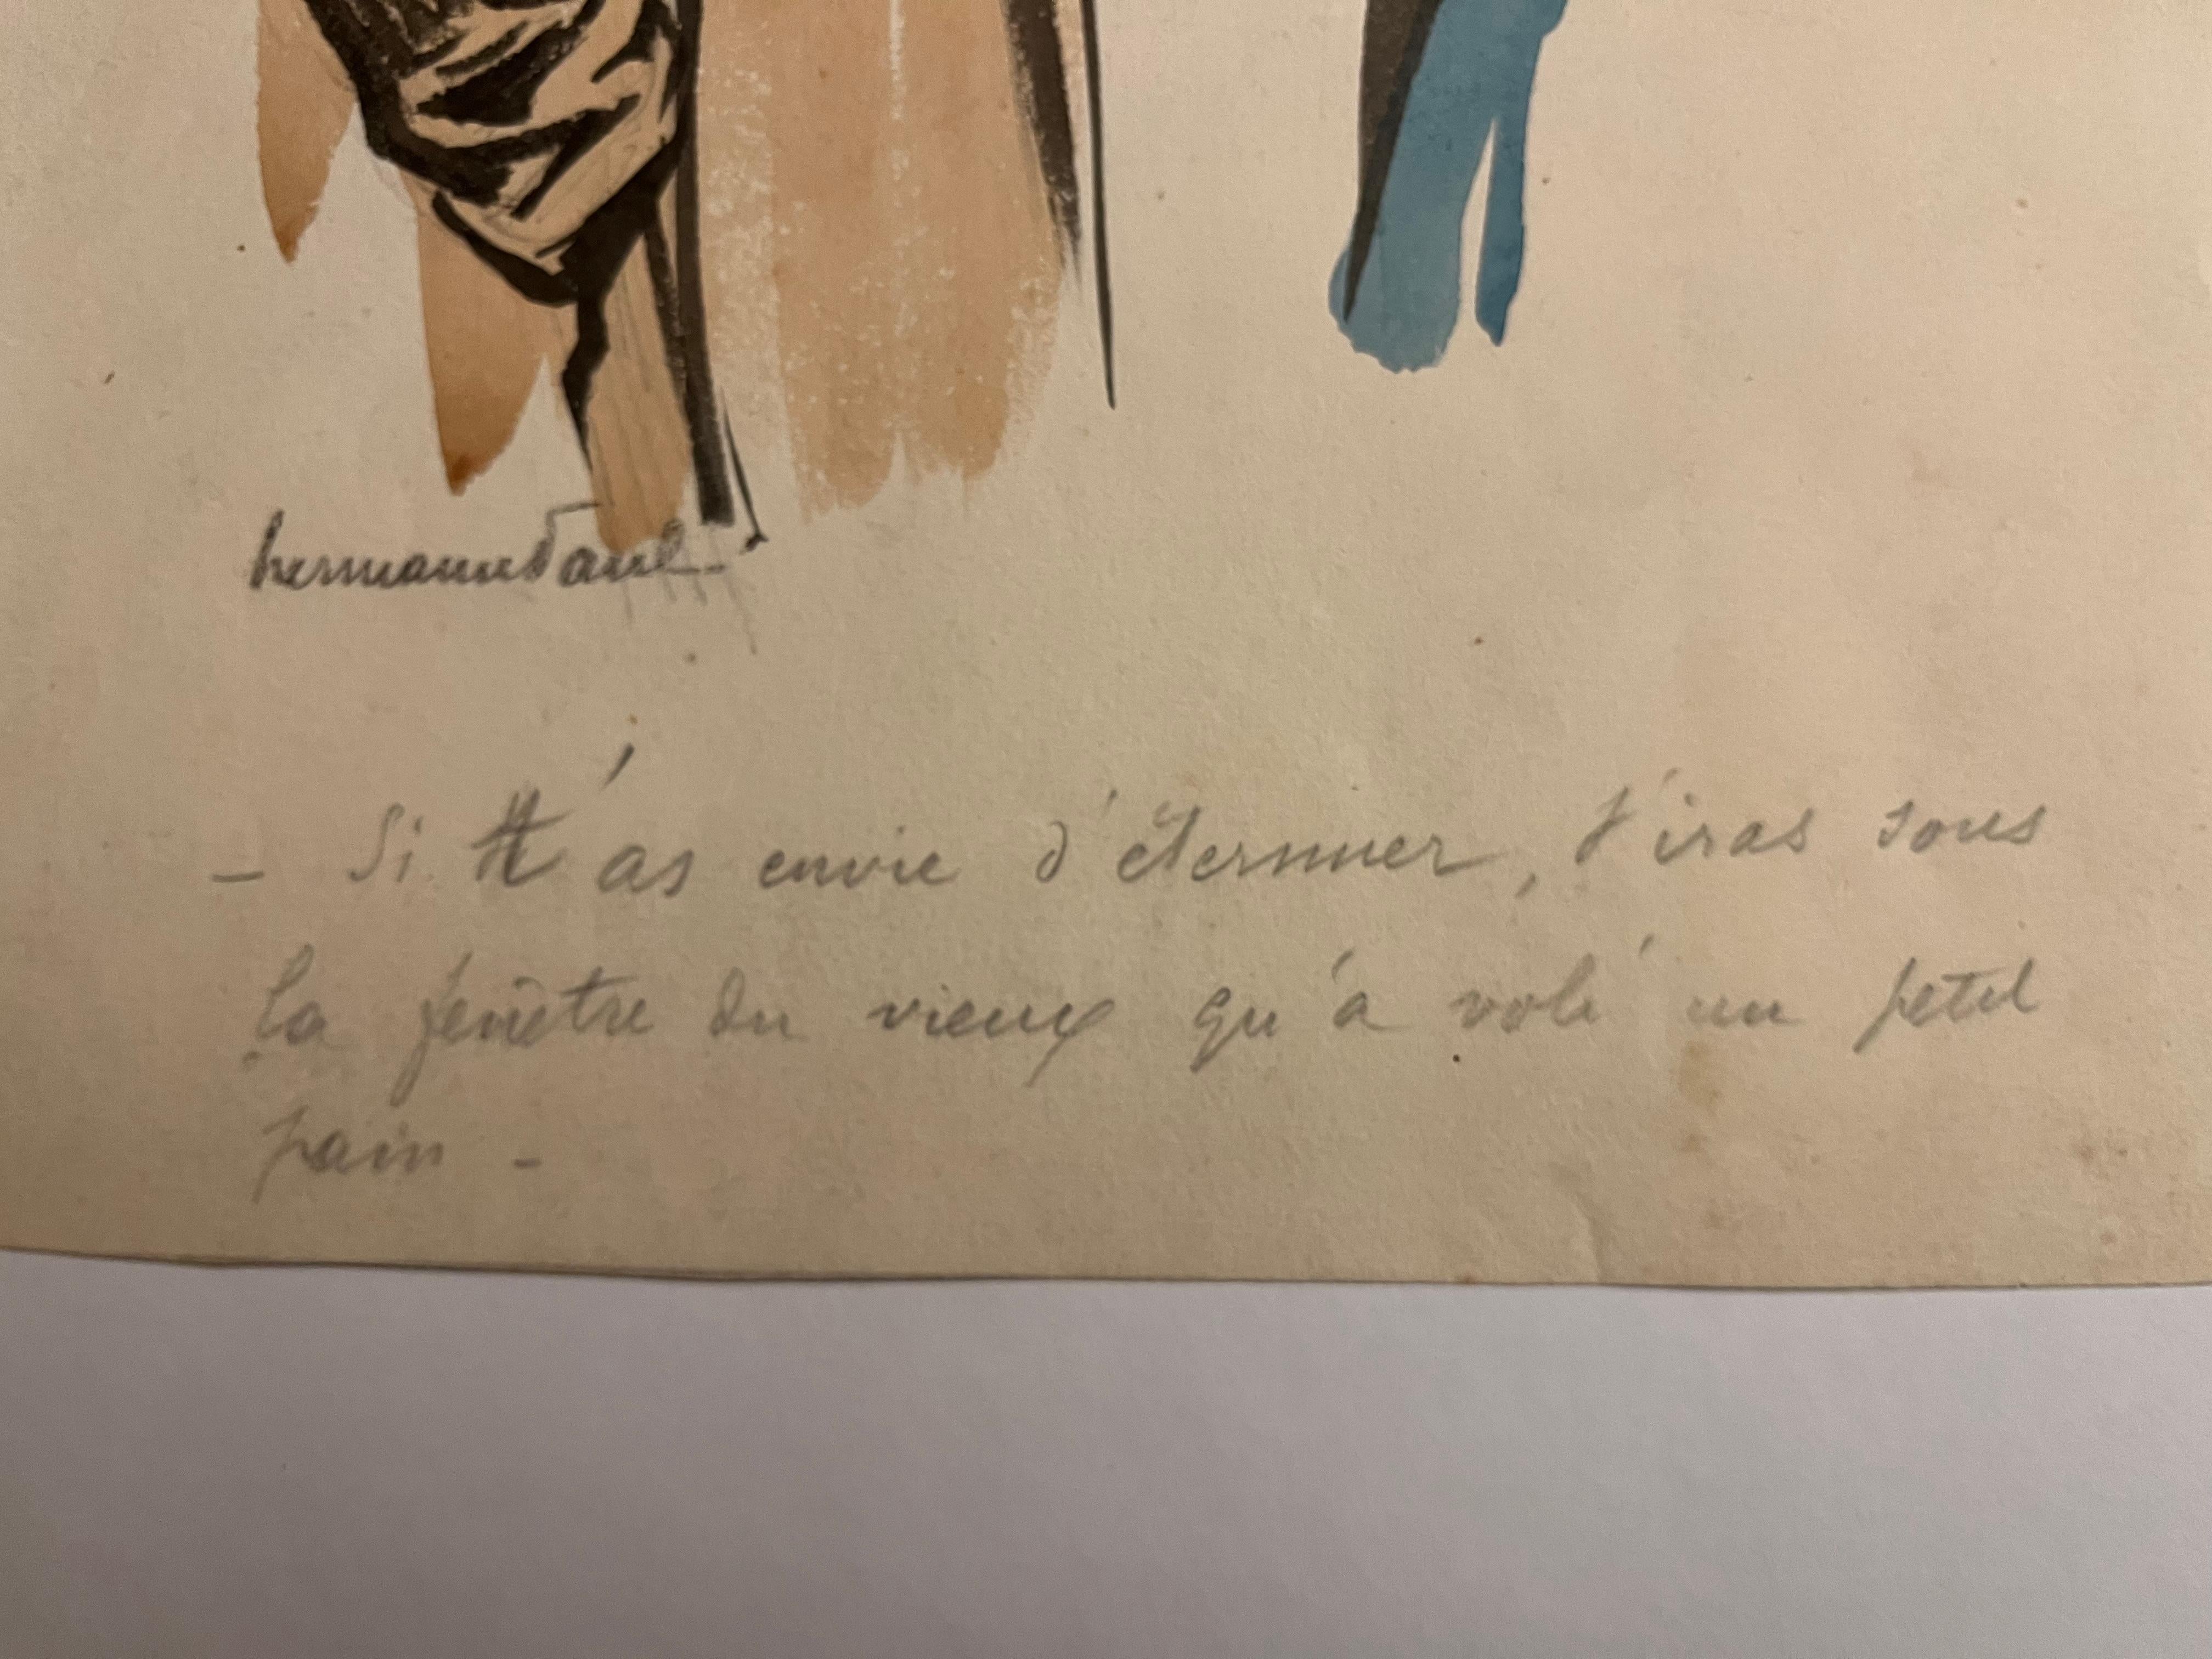 hermannPaul
– Si t'as envie d'éternuer, t'iras sous
la fenêtre du vieux qu'a volé un petit
pain –